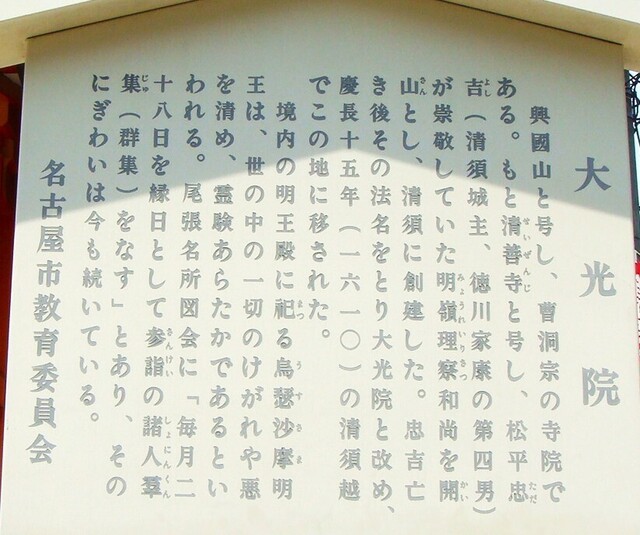 大光院
興國山と号し、曹洞宗の寺院で
ある。もと清善寺と号し、松平忠
吉（清須城主、徳川家康の第四男）
が崇敬していた明嶺理察和尚を開
山とし、清須に創建した。忠吉亡
き後その法名をとり大光院と改め、
慶長十五年（一六一〇）の清須越
でこの地に移された。
境内の明王殿に祀る烏瑟沙摩明
王は、世の中の一切のけがれや悪
を清め、霊験あらたかであるとい
われる。尾張名所図会に「毎月二
十八日を縁日として参詣の諸人羣
集（群集）をなす」とあり、その
にぎわいは今も続いている。
名古屋市教育委員会